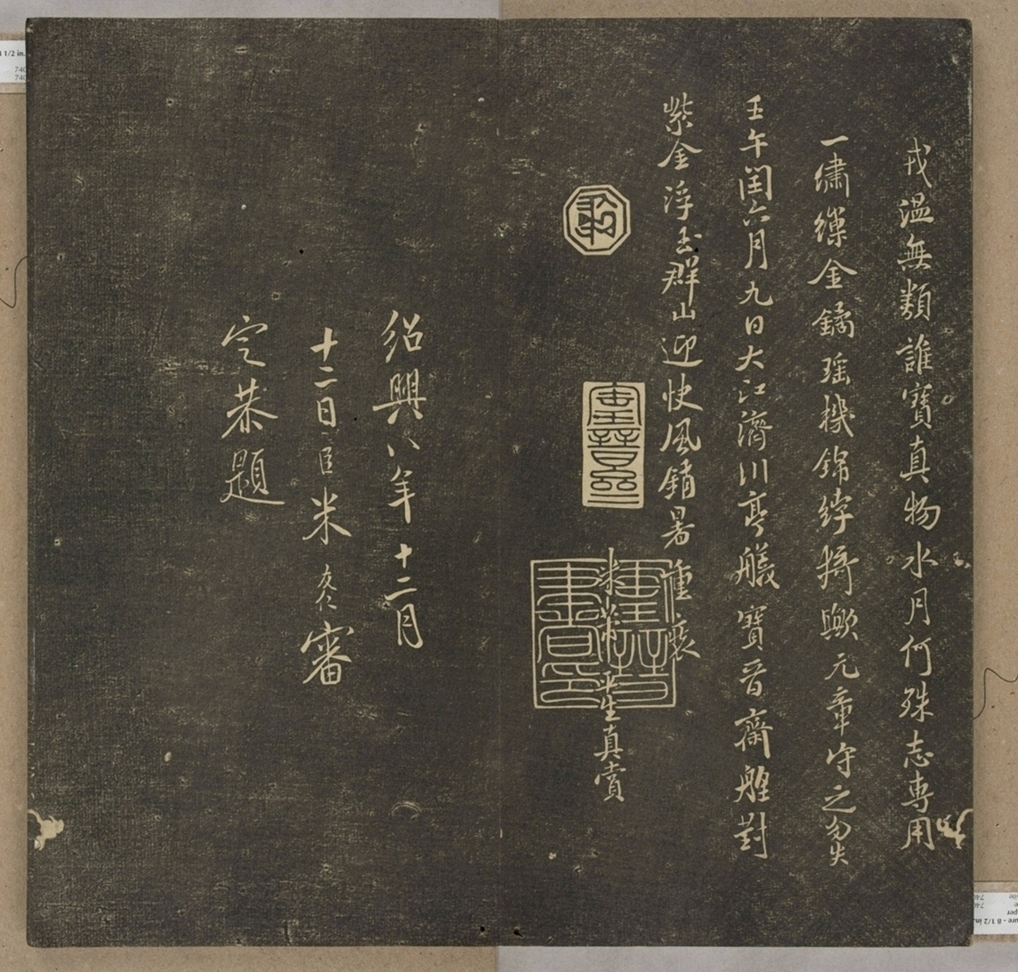 戎温無類誰寶真物水月何殊志專用
一繡繅金鐍瑶機錦綍猗歟元章守之勿失
壬午閏六月九日大江濟川亭艤寶晉齋艎對
紫金浮玉群山迎快風銷暑重裝
米芾平生真賞
紹興八年十二月
十二日臣米友仁審
定恭題